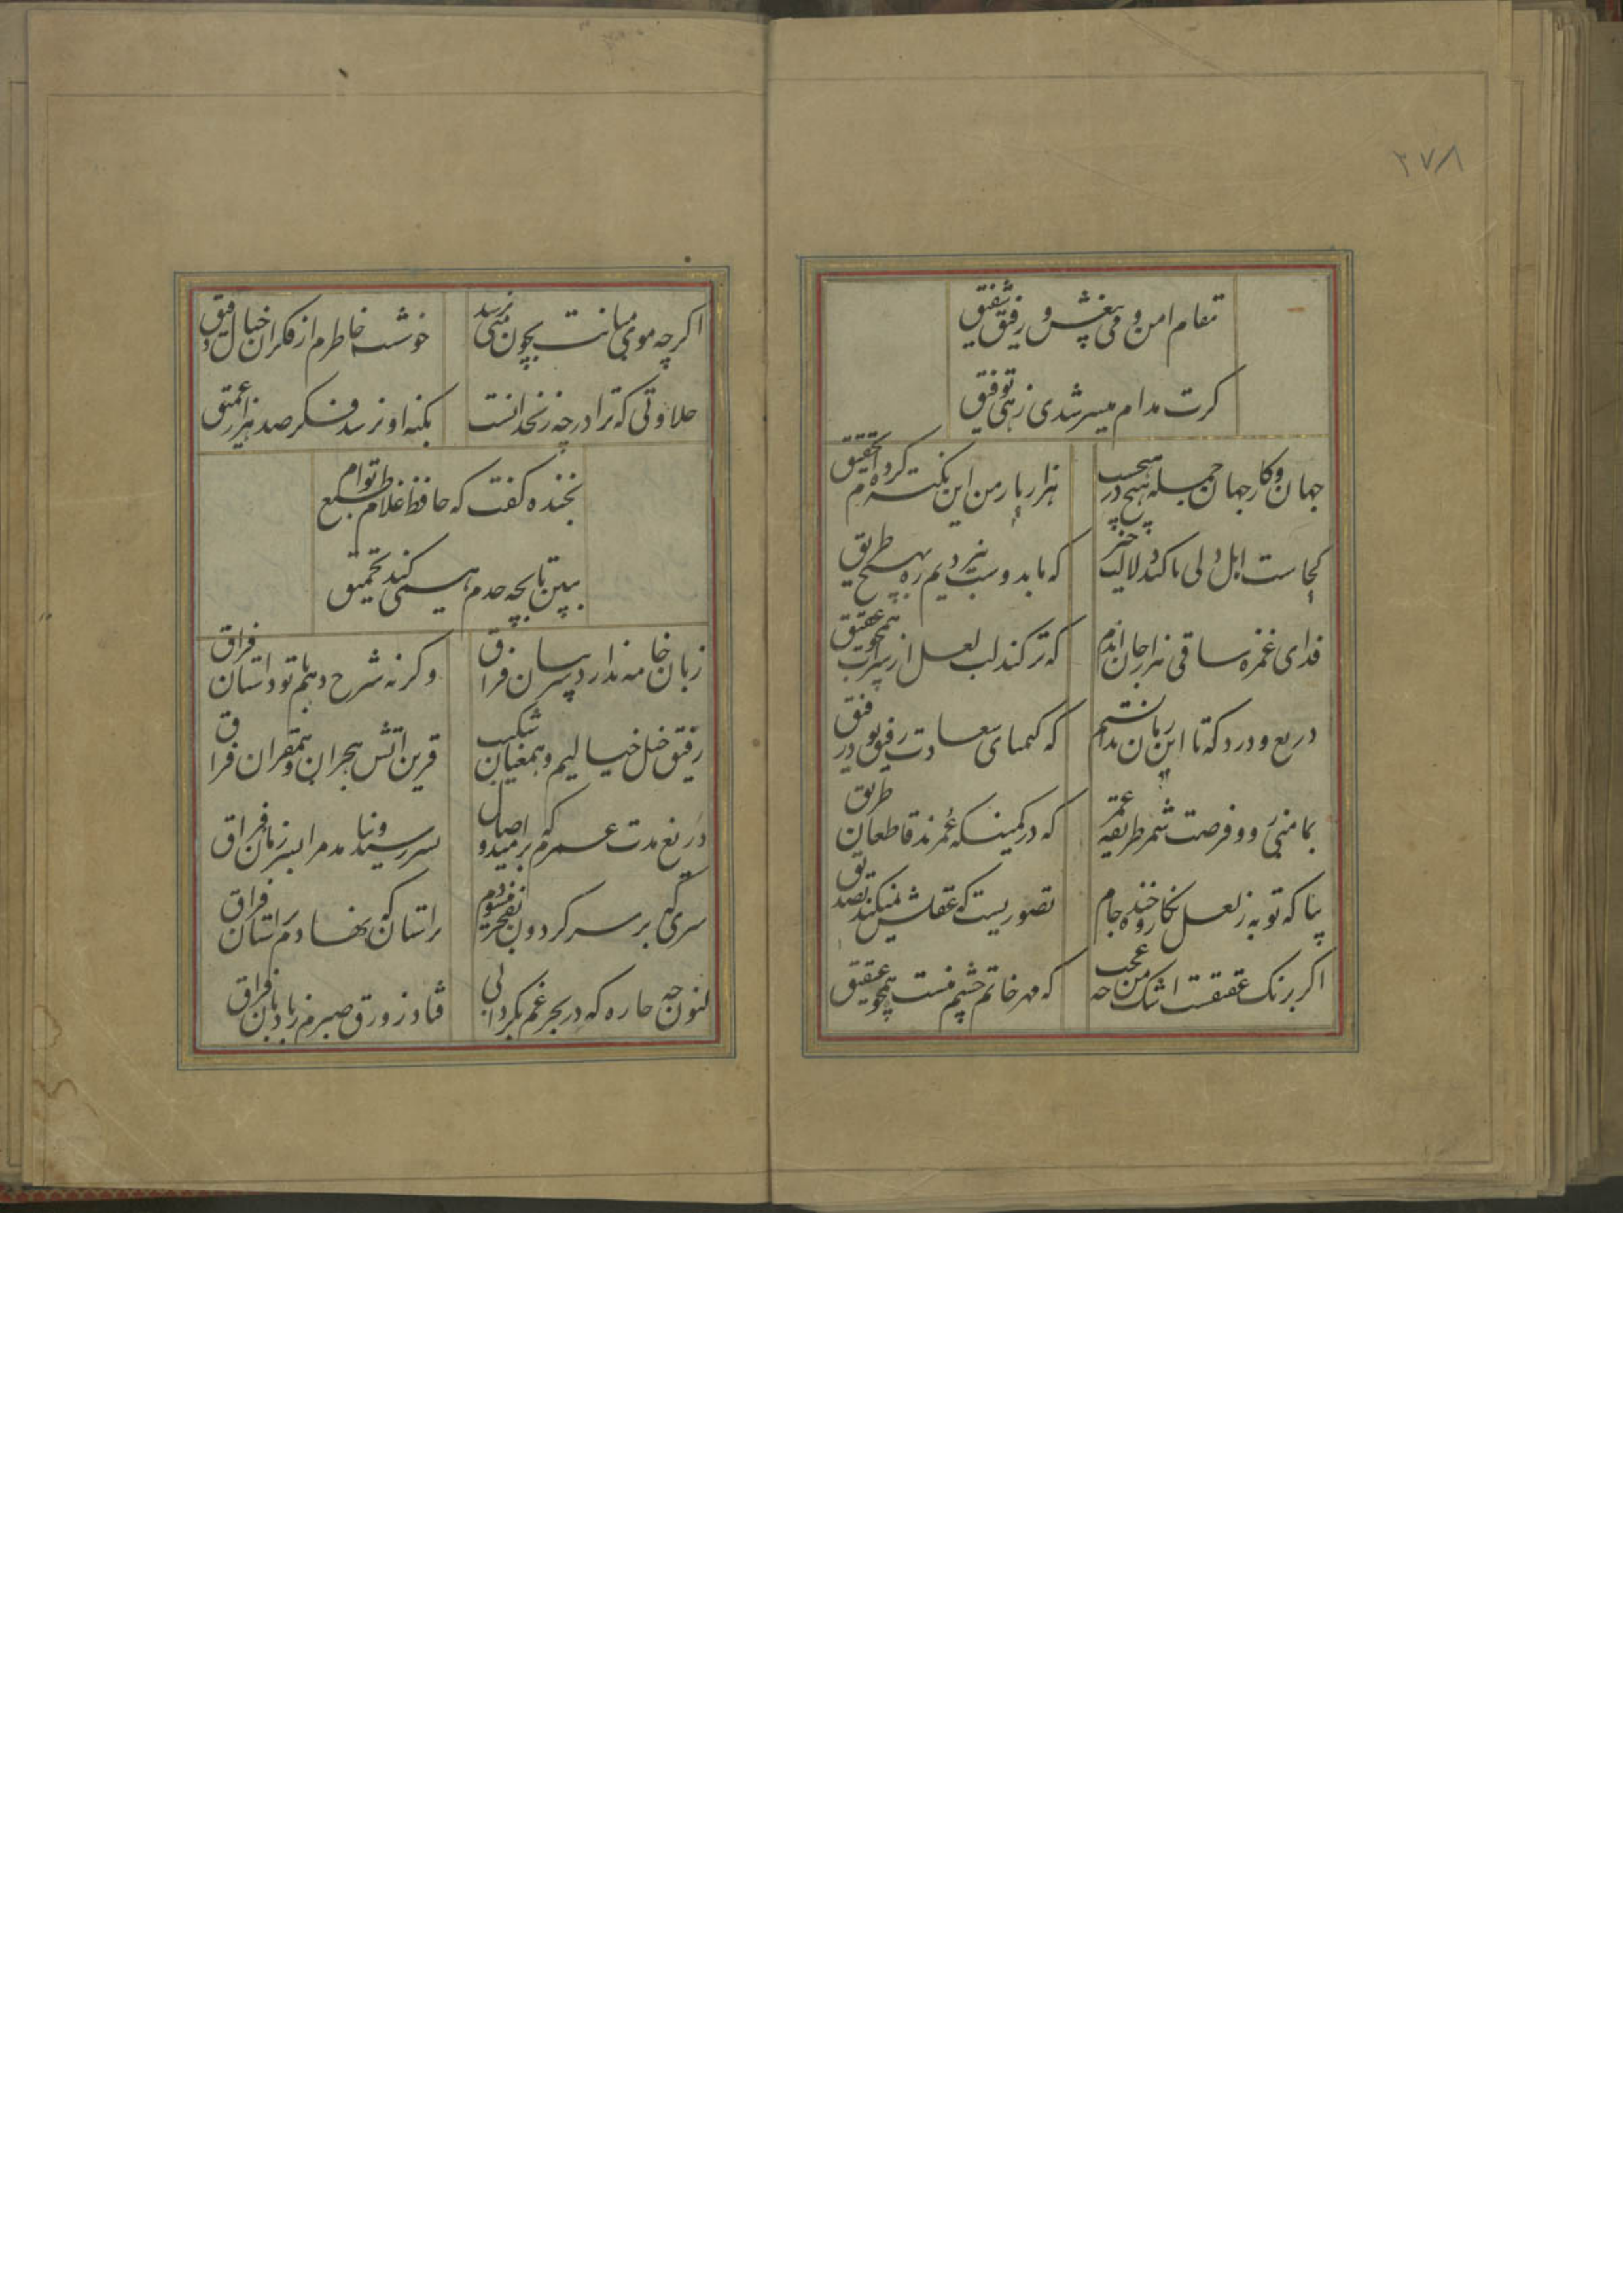 ۲۷۸
مقام امن و می بیغش و رفیق شفیق
کرت مدام میسر شدی زهی توفیق
جهان و کار جهان جمله هیچ در هیچست
هزار بار من این نکته کرده‌ام تحقیق
کجاست اهل دلی تا کند دلالت خیر
که ما بدوست نبردیم ره بهیچ طریق
فدای غمزه ساقی هزار جان اندم
که تر کند لب لعل از شراب همچو عقیق
دریغ و درد که تا این زمان ندانستم
که کیمیای سعادت رفیق بود رفیق
بمامنی رو و فرصت شمر طریقه عمر
که در کمینکه عمرند قاطعان طریق
بیا که توبه ز لعل نکار و خنده جام
تصوریست که عقلش نمیکند تصدیق
اکر برنک عقیقست اشک من چه عجب
که مهر خاتم چشم منست همچو عقیق
اکرچه موی میانت بچون منی نرسد
خوشست خاطرم از فکر ان خیال دقیق
حلاوتی که ترا در چه زنخدانست
بکنه او نرسد فکر صد هزار عمیق
بخنده کفت که حافظ غلام طبع توام
ببین تا بچه حدم همی کند تحمیق
زبان خامه ندارد سر بیان فراق
وکرنه شرح دهم با تو داستان فراق
رفیق خیل خیالیم و همعنان شکیب
قرین اتش هجران و همقران فراق
دریغ مدت عمرم که بر امید وصال
بسر رسید و نیامد بسر زمان فراق
سری که بر سر کردون بفخر میسودم
براستان که نهادم بر استان فراق
کنون چه چاره که در بحر غم بکردابی
فتاد زورق صبرم ز بادبان فراق